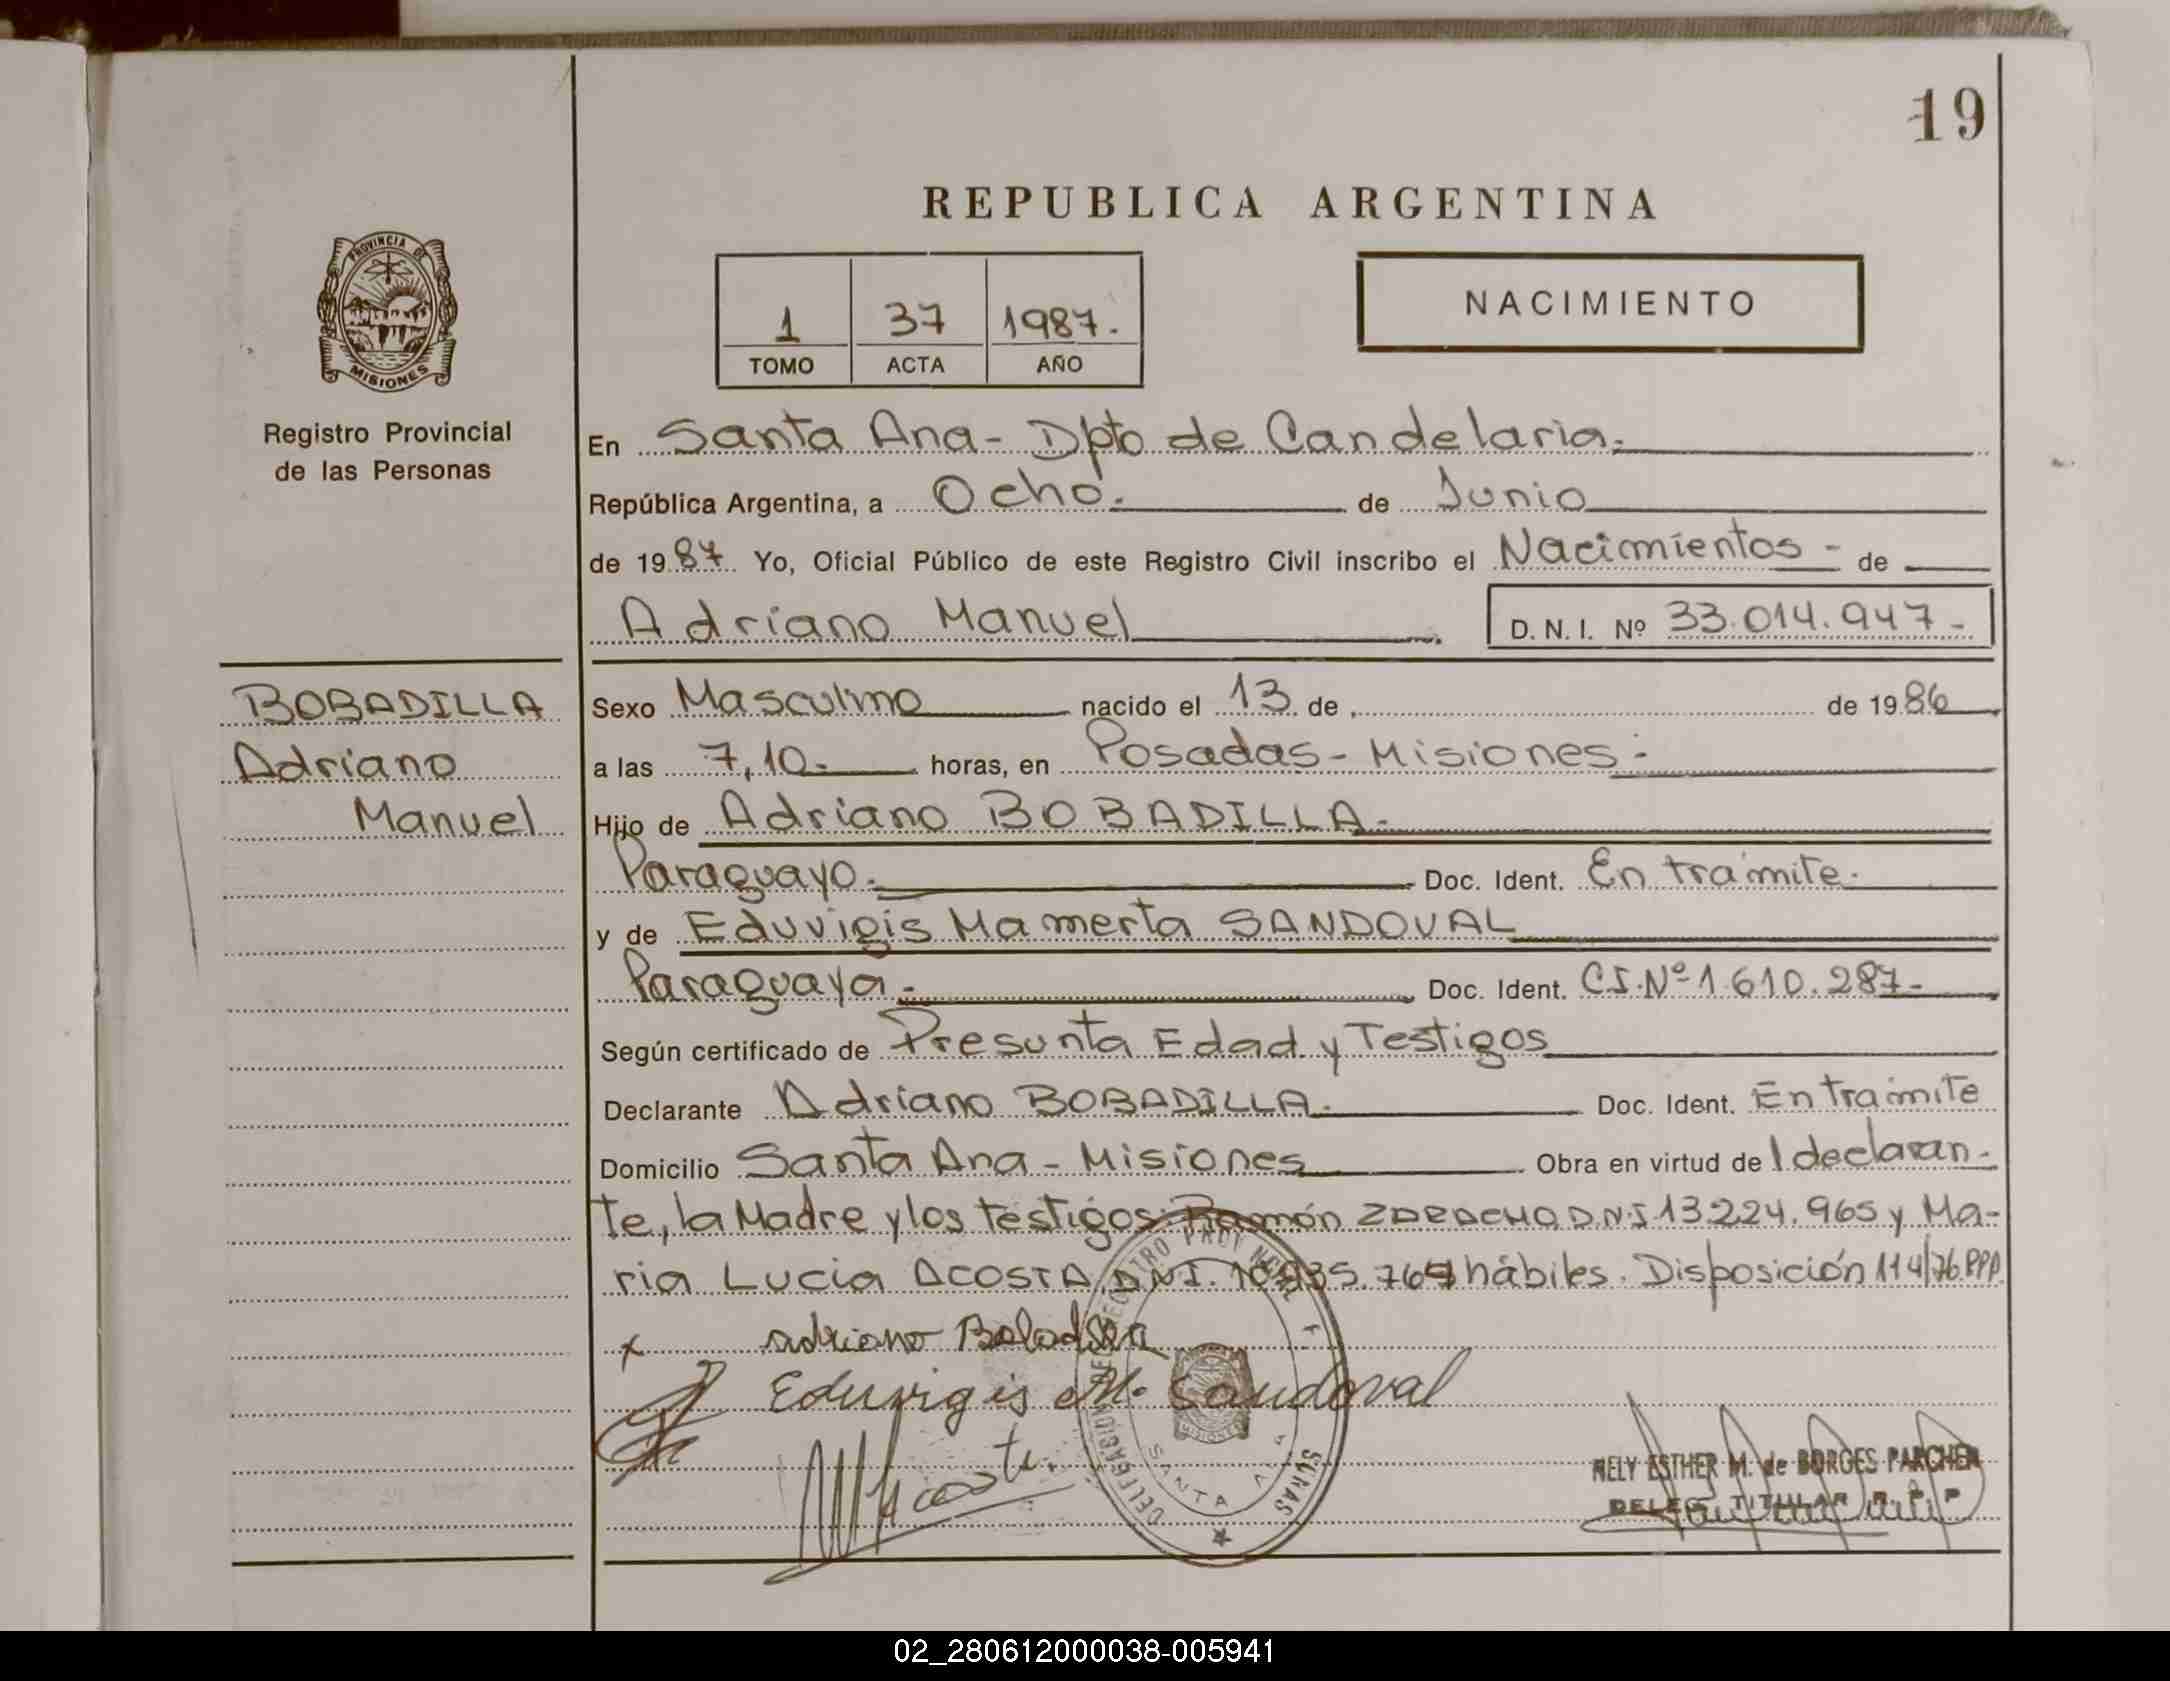 19
REPUBLICA ARGENTINA
PROVINCIA DE
MISIONES
Registro Provincial
de las Personas
1 37 1987.
TOMO ACTA AÑO
NACIMIENTO
En Santa Ana - Dpto de Candelaria.
República Argentina, a Ocho. de Junio
de 1987 Yo, Oficial Público de este Registro Civil inscribo el Nacimientos - de
Adriano Manuel D. N. I. Nº 33.014.947-
BOBADILLA
Adriano
Manuel
Sexo Masculino nacido el 13 de de 1986
a las 7,10. horas, en Posadas - Misiones.
Hijo de Adriano BOBADILLA.
Paraguayo. Doc. Ident. En trámite.
y de Eduvigis Mamerta SANDOVAL
Paraguaya. Doc. Ident. C.I. Nº 1.610.287-
Según certificado de Presunta Edad y Testigos
Declarante Adriano BOBADILLA. Doc. Ident. En trámite
Domicilio Santa Ana - Misiones Obra en virtud de l declaran-
te, la Madre y los testigos: Ramón D.N.I 13.224.965 y Ma-
ria Lucia ACOSTA D.N.I. hábiles. Disposición 114/76
x adriano
Eduvigis M. Sandoval
M Acosta
SANTA ANA
NELY ESTHER M. de BORGES PARCHEN
DELEG. TITULAR R. P. P
02_280612000038-005941